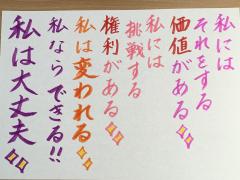 私には
それをする
価値がある
私には
挑戦する
権利がある
私は変われる
私ならできる!!
私は大丈夫!!